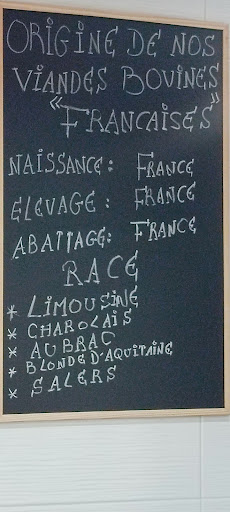 ORIGINE DE NOS
VIANDES BOVINES
"FRANCAISES"
NAISSANCE: FRANCE
ELEVAGE: FRANCE
ABATTAGE: FRANCE
RACE
* LIMOUSINE
* CHAROLAIS
* AUBRAC
* BLONDE D'AQUITAINE
* SALERS